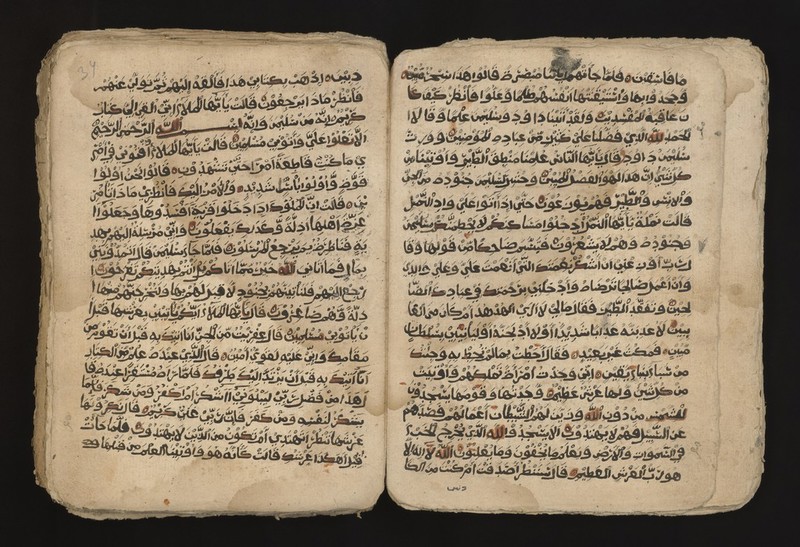 ما فاسقين فلما جاتهم اياتنا مبصرة قالوا هذا سحر مبين
وجحدوا بها واستيقنتها انفسهم ظلما وعلوا فانظر كيف كا
ن عاقبة المفسدين ولقد اتينا داود وسليمن علما وقالا ا
لحمد لله الذي فضلنا على كثير من عباده المومنين وورث
سليمن داود وقال يايها الناس علمنا منطق الطير واوتينا من
كل شيء ان هذا لهو الفضل المبين وحشر لسليمن جنوده من الجن
والانس والطير فهم يوزعون حتى اذا اتوا على واد النمل
قالت نملة يايها النمل ادخلوا مساكنكم لا يحطمنكم سليمن
وجنوده وهم لا يشعرون فتبسم ضاحكا من قولها وقا
ل رب اوزعني ان اشكر نعمتك التي انعمت علي وعلى والدي
وان اعمل صالحا ترضاه وادخلني برحمتك في عبادك الصا
لحين وتفقد الطير فقال مالي لا ارى الهدهد ام كان من الغا
يبين لاعذبنه عذابا شديدا اولاذبحنه او لياتيني بسلطان
مبين فمكث غير بعيد فقال احطت بما لم تحط به وجئتك
من سبا بنبا يقين اني وجدت امراة تملكهم واوتيت
من كل شيء ولها عرش عظيم وجدتها وقومها يسجدون
للشمس من دون الله وزين لهم الشيطان اعمالهم فصدهم
عن السبيل فهم لا يهتدون الا يسجدوا لله الذي يخرج الخبء
في السموات والارض ويعلم ما تخفون وما تعلنون الله لا اله الا
هو رب العرش العظيم قال سننظر اصدقت ام كنت من الكا
ذبين
34
ذبين اذهب بكتابي هذا فالقه اليهم ثم تول عنهم
فانظر ماذا يرجعون قالت يايها الملا اني القي الي كتاب
كريم انه من سليمن وانه بسم الله الرحمن الرحيم
الا تعلوا علي واتوني مسلمين قالت يايها الملا افتوني في امر
ي ما كنت قاطعة امرا حتى تشهدون قالوا نحن اولوا
قوة واولوا باس شديد والامر اليك فانظري ماذا تامر
ين قالت ان الملوك اذا دخلوا قرية افسدوها وجعلوا ا
عزة اهلها اذلة وكذلك يفعلون واني مرسلة اليهم بهد
ية فناظرة بم يرجع المرسلون فلما جا سليمن قال اتمدونن
بمال فما اتاني الله خير مما اتاكم بل انتم بهديتكم تفرحون ا
رجع اليهم فلناتينهم بجنود لا قبل لهم بها ولنخرجنهم منها ا
ذلة وهم صاغرون قال يايها الملا ايكم ياتيني بعرشها قبل ا
ن ياتوني مسلمين قال عفريت من الجن انا اتيك به قبل ان تقوم من
مقامك واني عليه لقوي امين قال الذي عنده علم من الكتاب
انا اتيك به قبل ان يرتد اليك طرفك فلما راه مستقرا عنده قا
ل هذا من فضل ربي ليبلوني ااشكر ام اكفر ومن شكر فانما
يشكر لنفسه ومن كفر فان ربي غني كريم قال نكروا لها
عرشها ننظر اتهتدي ام تكون من الذين لا يهتدون فلما جات
قيل اهكذا عرشك قالت كانه هو واوتينا العلم من قبلها و